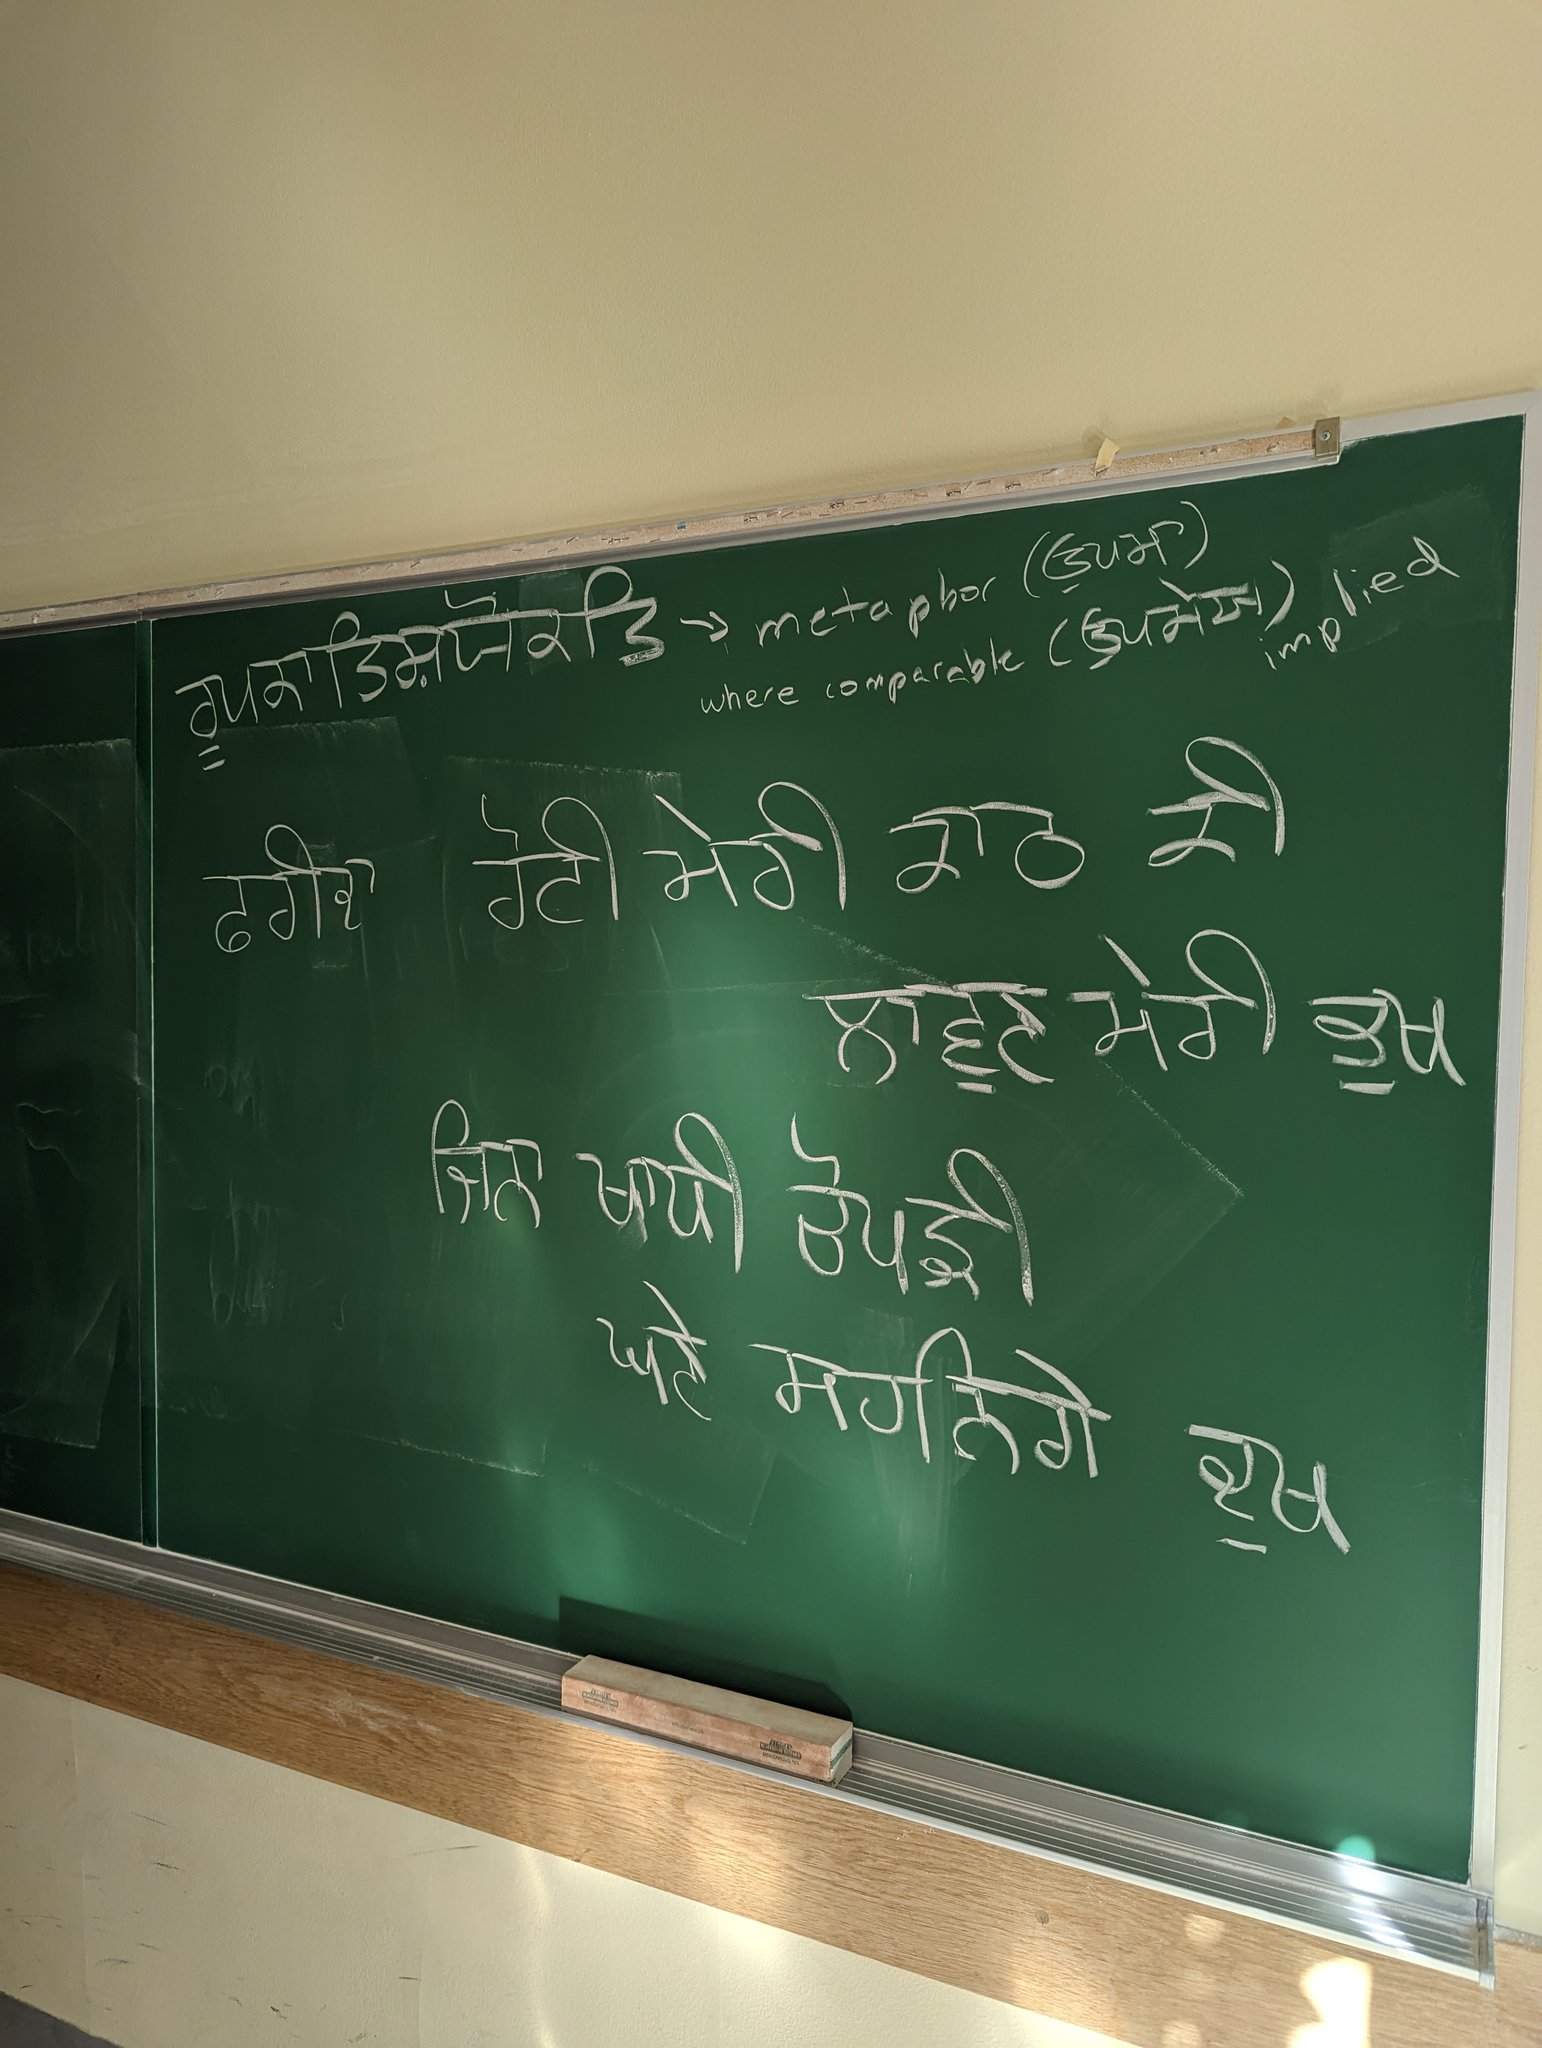 ਰੂਪਕਾਤਿਸ਼ਯੋਕਤਿ → metaphor (ਉਪਮਾ)
where comparable (ਉਪਮੇਯ) implied
ਫਰੀਦਾ ਰੋਟੀ ਮੇਰੀ ਕਾਠ ਕੀ
ਲਾਵਣੁ ਮੇਰੀ ਭੁਖ
ਜਿਨਾ ਖਾਧੀ ਚੋਪੜੀ
ਘਣੇ ਸਹਨਿਗੇ ਦੁਖ